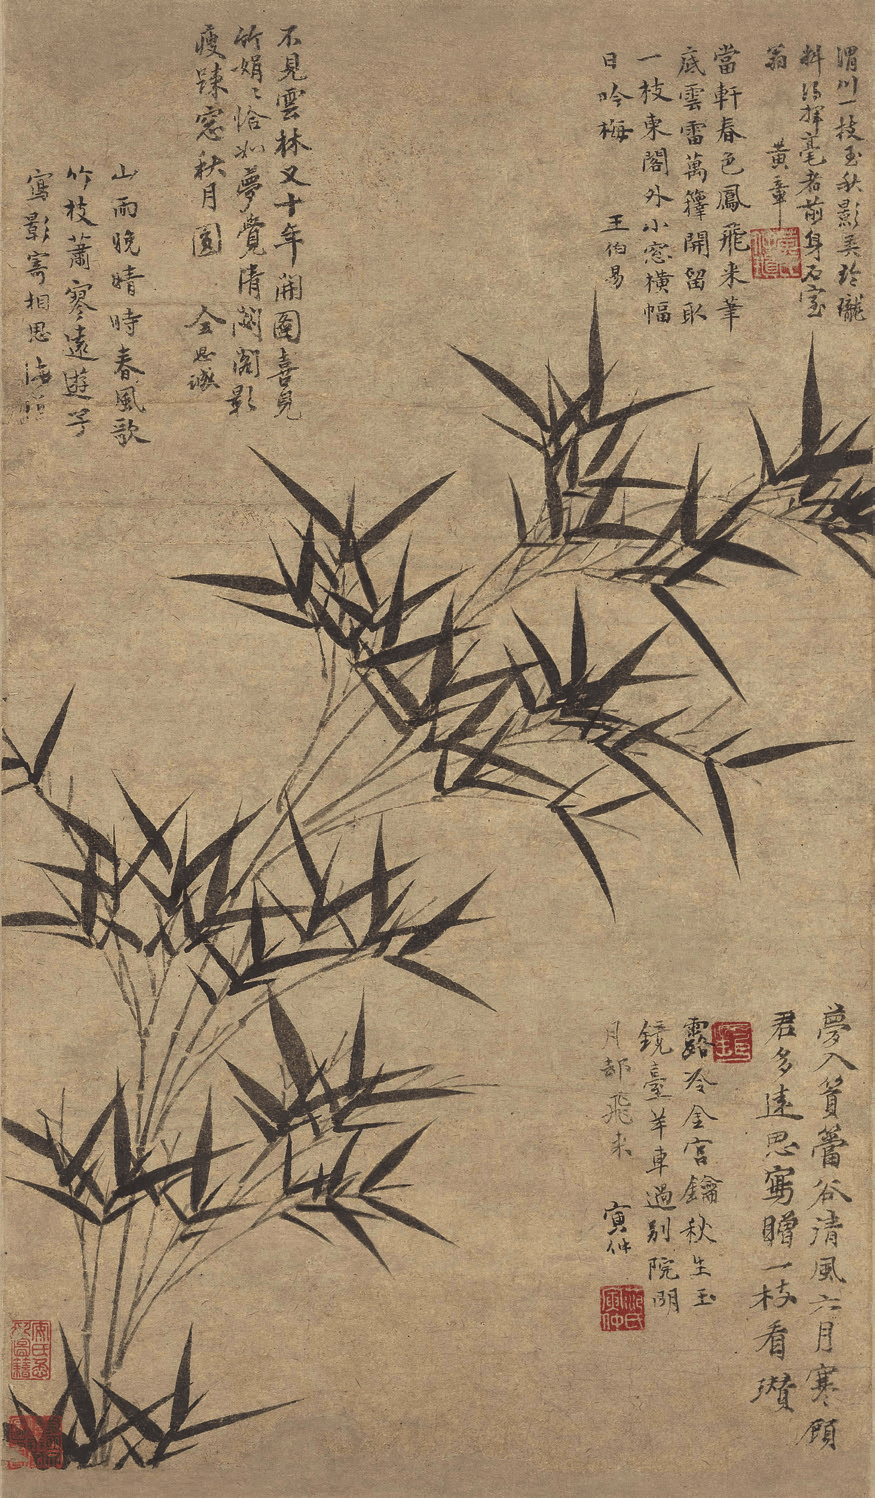 渭川一枝玉秋影美玲瓏
料得揮毫者前身石室
翁 黃章
當軒春色鳳飛來筆
底雲雷萬籜開留取
一枝東閣外小窓橫幅
日吟梅 王伯易
不見雲林又十年開圖喜見
竹娟〻恰如夢覺清閟閣影
瘦踈窓秋月圓 金
山雨晚晴時春風歌
竹枝蕭寥遠遊子
寫影寄相思 海
夢入篔簹谷清風六月寒顧
君多遠思寫贈一枝看 瓚
露冷金宮鑰秋生玉
鏡臺羊車過別院明
月都飛來 寅仲